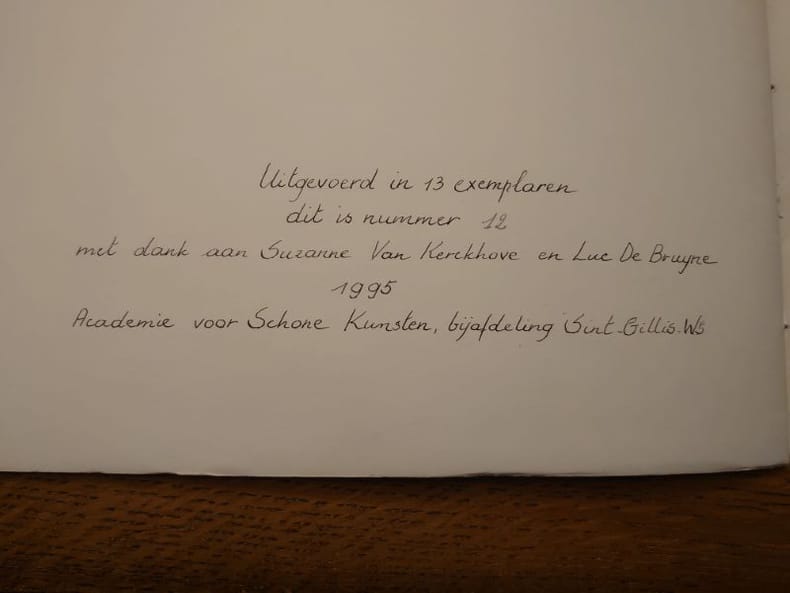 Uitgevoerd in 13 exemplaren
dit is nummer 12
met dank aan Suzanne Van Kerckhove en Luc De Bruyne
1995
Academie voor Schone Kunsten, bijafdeling Sint-Gillis-Ws